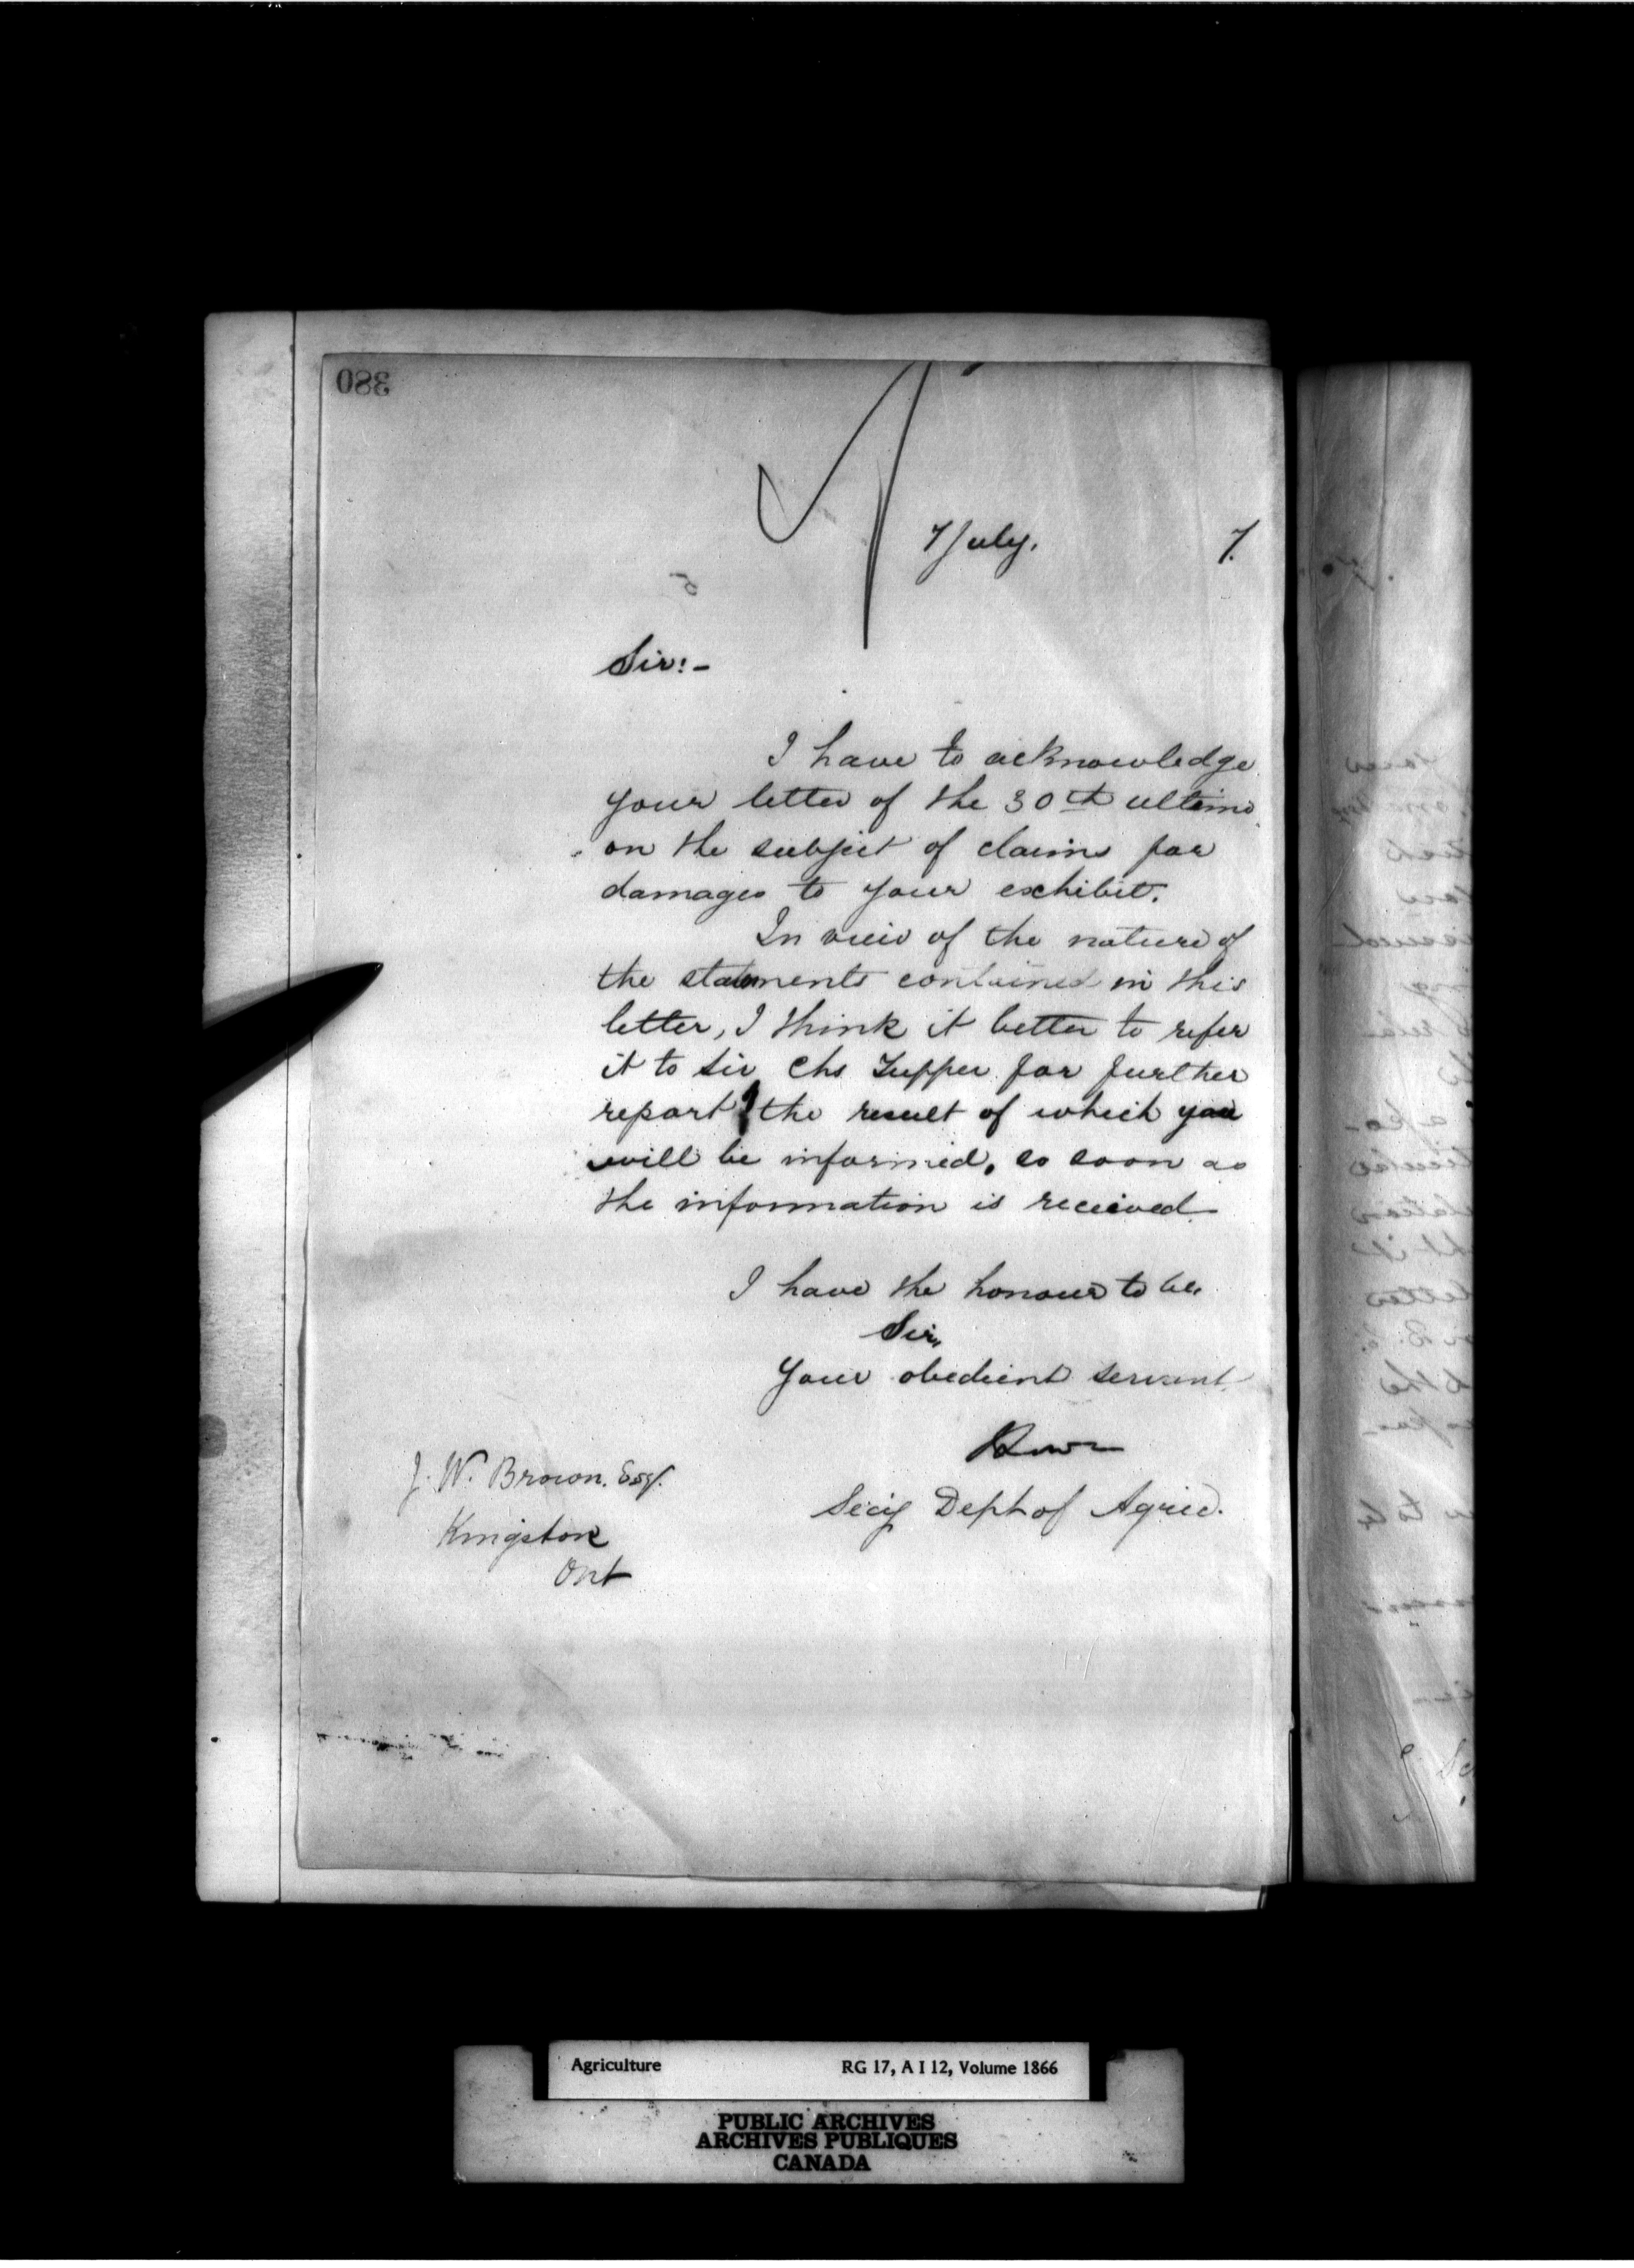 380
7 July. 7.
Sir:-
I have to acknowledge
your letter of the 30th ultimo
on the subject of claims for
damages to your exhibit.
In view of the nature of
the statements contained in this
letter, I think it better to refer
it to Sir Chs Tupper for further
report, the result of which you
will be informed, so soon as
the information is received
I have the honour to be,
Sir,
Your obedient servant.
Secy Dept of Agric.
J. W. Brown. Esq.
Kingston
Ont
Agriculture RG 17, A I 12, Volume 1866
PUBLIC ARCHIVES
ARCHIVES PUBLIQUES
CANADA